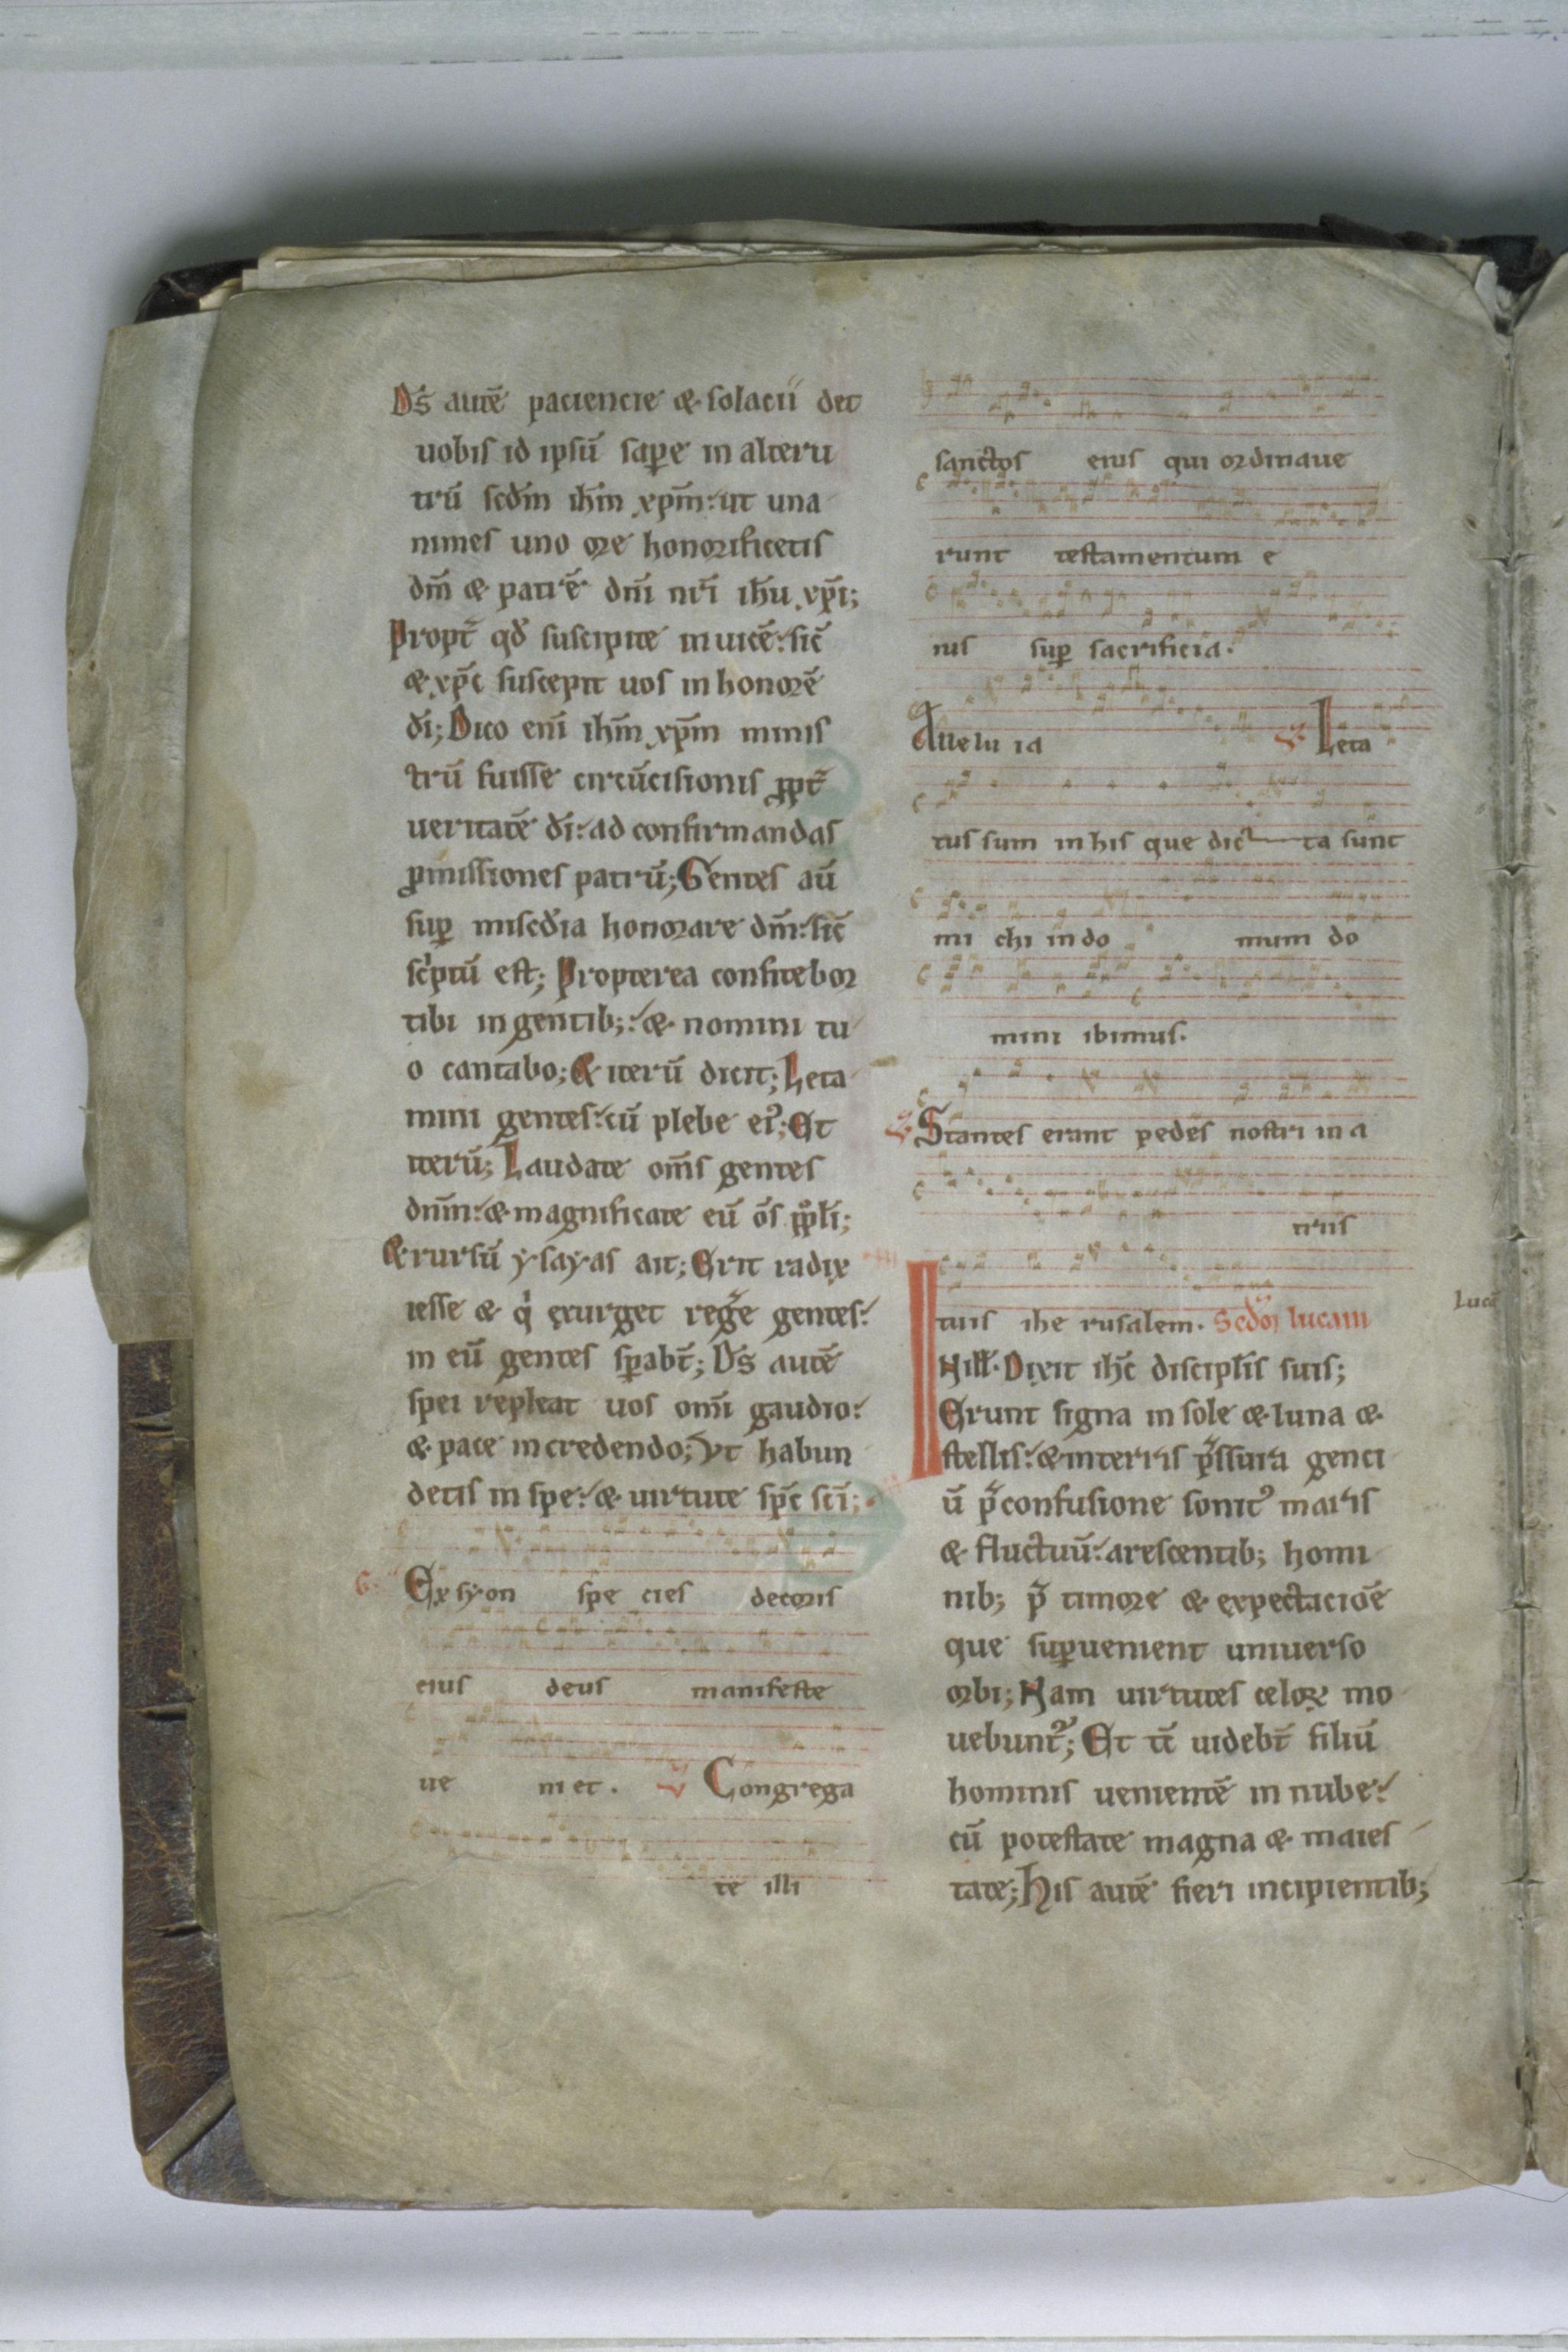 Ds̄ autē paciencie & solacii det
uobis id ipsū sap̱e in alteru
trū scd̄m ih̄m xp̄m: ut una
nimes uno ore honorificetis
dm̄ & patrē dn̄i nr̄i ih̄u xp̄i;
Propt̄ qd̄ suscipite inuicē: sic̄
& xp̄c suscepit uos in honorē
dī; Dico eni̅ ih̄m xp̄m minis
trū fuisse circūcisionis ꝓpt̄
ueritatē dī: ad confirmandas
ꝓmissiones patrū; Gentes aū
sup̱ misc̄dia honorare dm̄: sic̄
sc̄ptū est; Propterea confitebor
tibi in gentib;: & nomini tu
o cantabo; & iterū dicit; Leta
mini gentes: cū plebe ei⁹; Et
iterū; Laudate om̄s gentes
dn̄m: & magnificate eū ōs ppl̄i;
& rursū ysayas ait; Erit radix
iesse & qͥ exurget reg̅e gentes:
in eū gentes sp̱abt̄; Ds̄ autē
spei repleat uos om̄i gaudio:
& pace in credendo; Vt habun
detis in spe: & uirtute sp̄c sc̄i;
G. Ex syon spe cies decoris
eius deus manifeste
ue ni et. V̄ Congrega
te illi
sanctos eius qui ordinaue
runt testamentum e
ius sup̱ sacrificia.
Alleluia V̄ Leta
tus sum in his que dic ta sunt
mi chi in do mum do
mini ibimus.
V̄ Stantes erant pedes nostri in a
triis
tuis ihe rusalem. Scdꝫ lucam
Lucā
IN ill̄. Dixit ih̄c discipl̄is suis;
Erunt signa in sole & luna &
stellis: & in terris p̄ssura genci
ū p̄ confusione sonit⁹ maris
& fluctuū: arescentib; homi
nib; p̄ timore & expectaciōe
que sup̱uenient uniuerso
orbi; Nam uirtutes celoꝝ mo
uebunt᷑; Et tc̄ uidebt̄ filiū
hominis uenientē in nube:
cū potestate magna & maies
tate; His autē fieri incipientib;